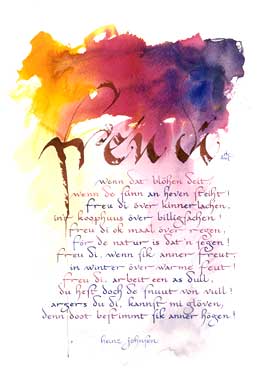 freu di
wenn dat blöhen deit,
wenn de sünn an heven steiht!
freu di över kinnerlachen,
int koophuus över billigsachen!
freu di ok maal över regen,
för de natur is dat'n segen!
freu di, wenn sik anner freut,
in winter över warme feut!
freu di, arbeit een as dull,
du hest doch de snuut von vull!
argers du di, kannst mi glöven,
denn doot bestimmt sik anner högen!
heinz johnsen